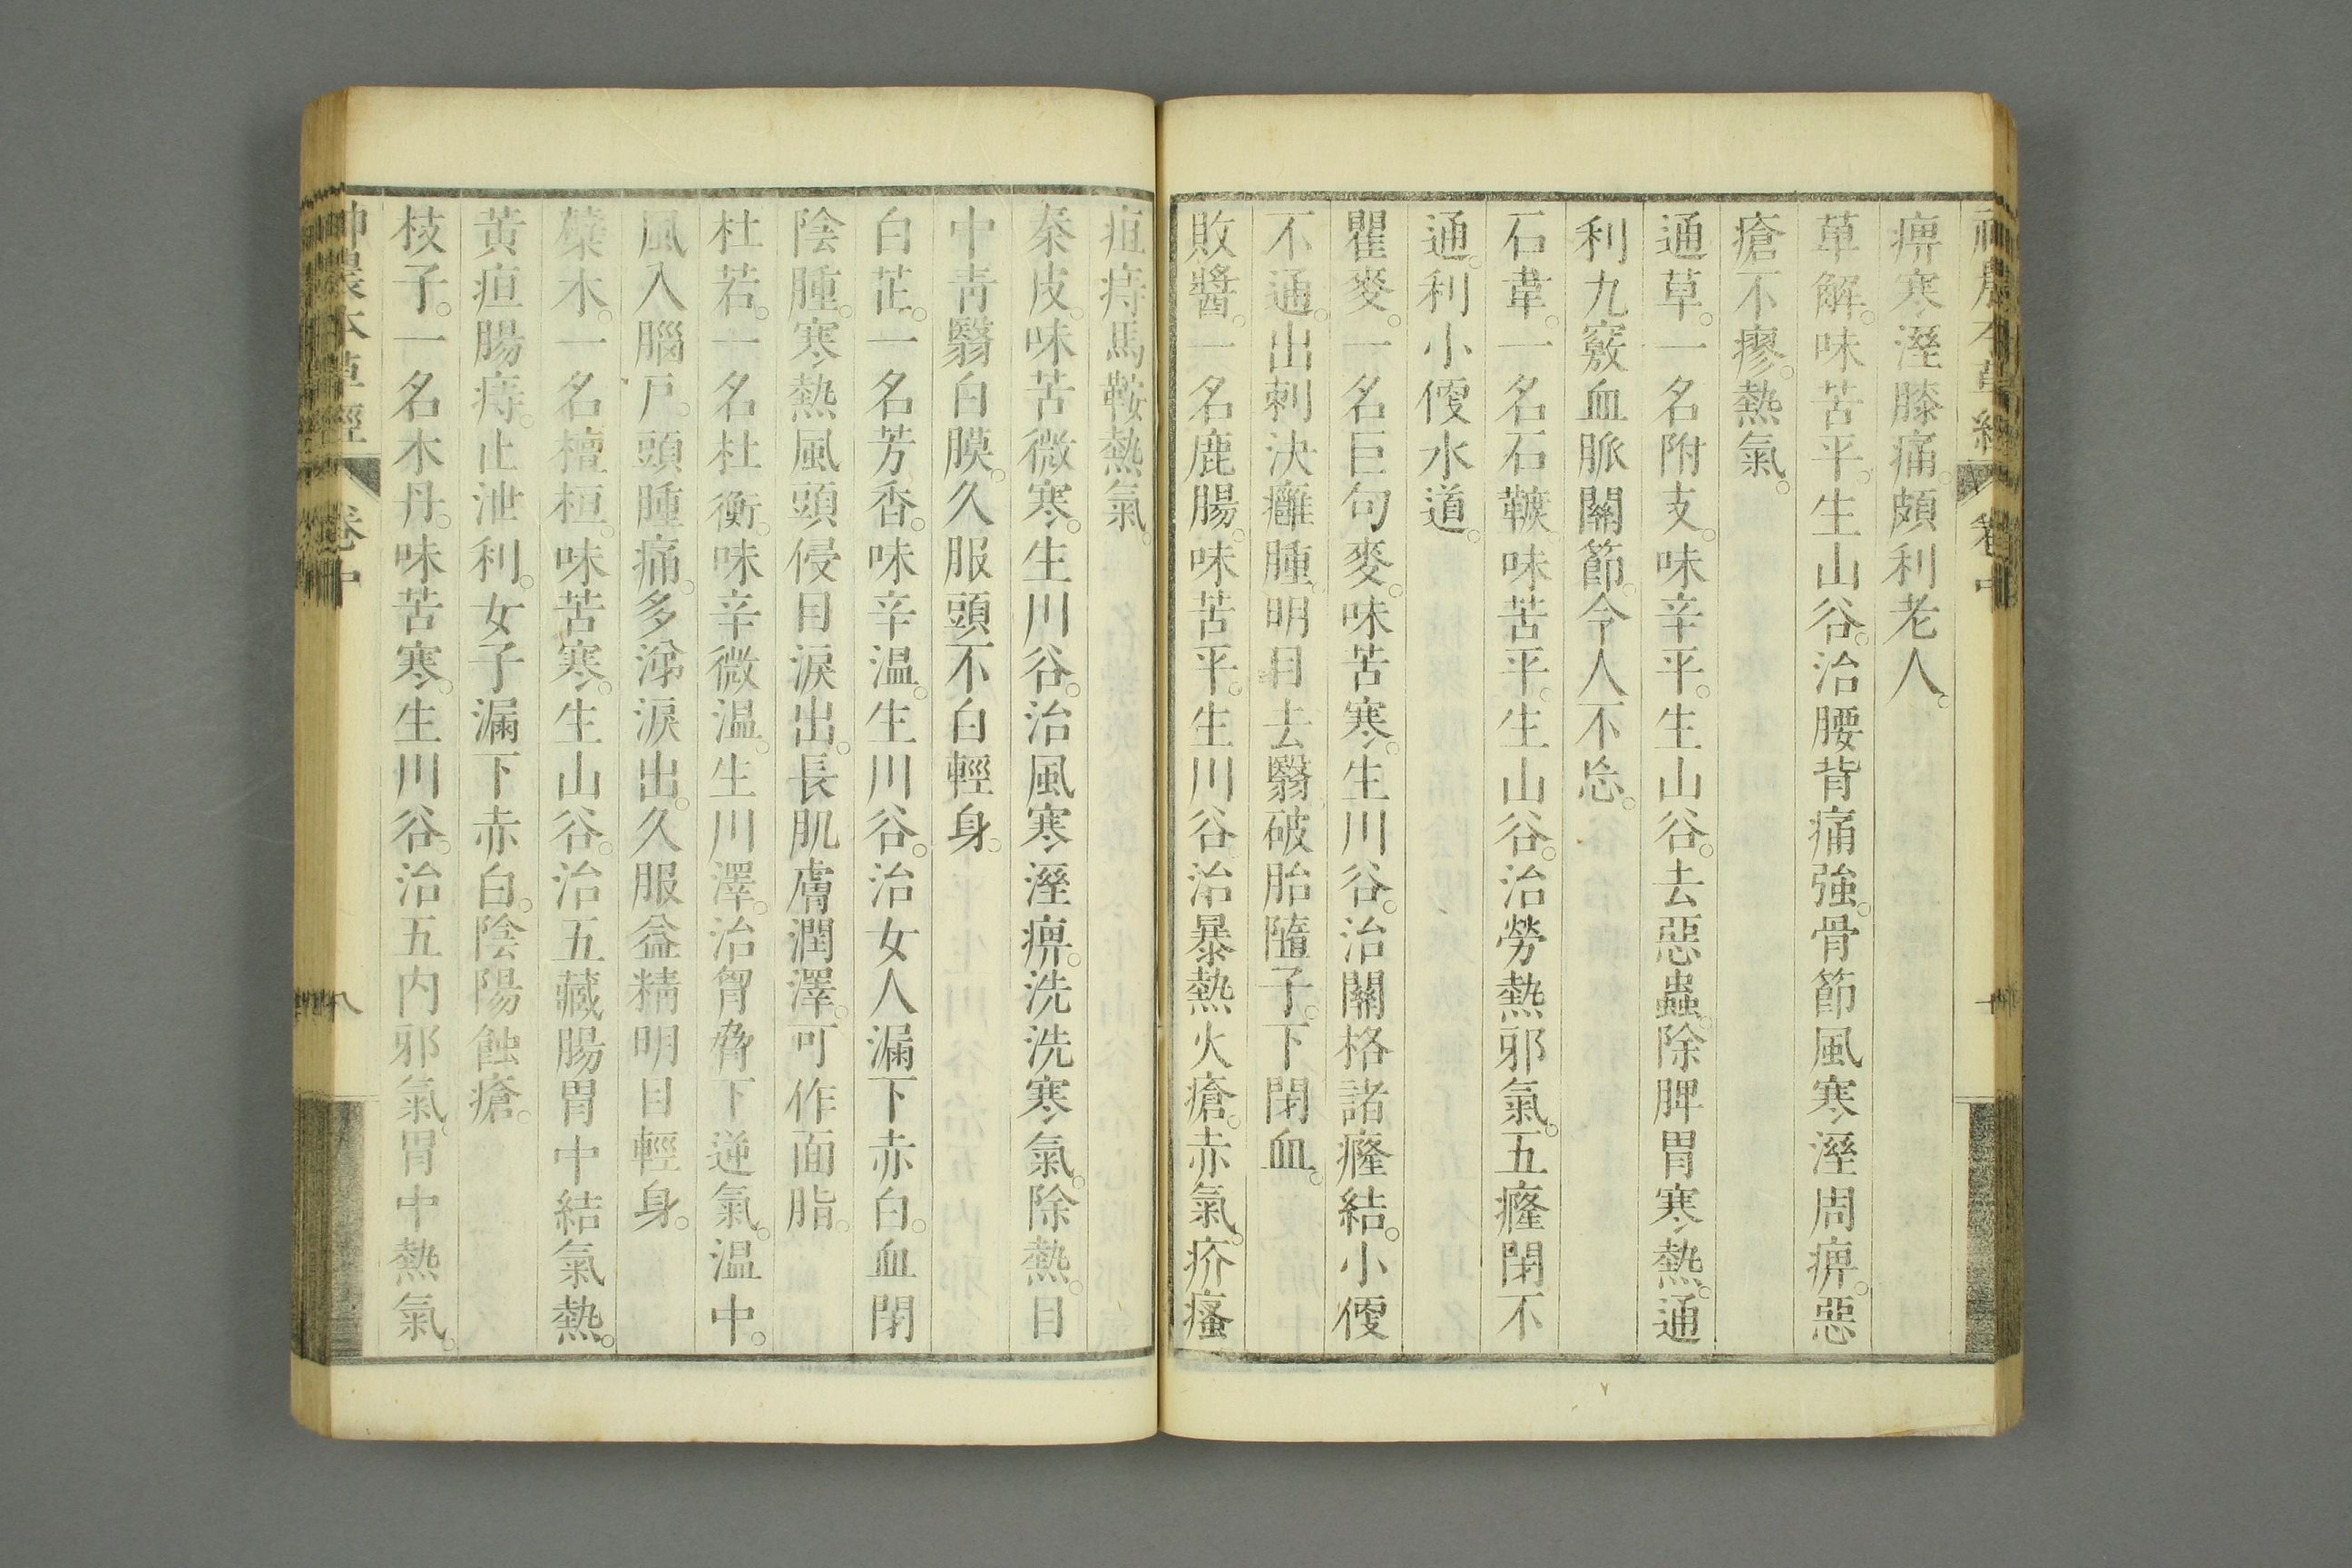 痹寒溼膝痛。頗利老人。
萆解。味苦平。生山谷。治腰背痛強。骨節風寒溼周痹。惡
瘡不瘳。熱氣。
通草。一名附支。味辛平。生山谷。去惡蟲。除脾胃寒熱。通
利九竅血脈關節。令人不忘。
石韋。一名石䩾。味苦平。生山谷。治勞熱邪氣。五癃閉不
通。利小便水道。
瞿麥。一名巨句麥。味苦寒。生川谷。治關格諸癃結。小便
不通。出刺決癰腫。明目去翳破胎墮子。下閉血。
敗醬。一名鹿腸。味苦平。生川谷。治暴熱火瘡。赤氣。疥瘙
疽痔馬鞍熱氣。
秦皮。味苦微寒。生川谷。治風寒溼痹。洗洗寒氣。除熱。目
中青翳白膜。久服頭不白輕身。
白芷。一名芳香。味辛温。生川谷。治女人漏下赤白。血閉
陰腫。寒熱風頭侵目淚出。長肌膚潤澤。可作面脂。
杜若。一名杜衡。味辛微温。生川澤。治胷脅下逆氣。温中。
風入腦戶。頭腫痛。多涕淚出。久服益精明目輕身。
蘗木。一名檀桓。味苦寒。生山谷。治五藏腸胃中結氣熱。
黃疸腸痔。止泄利。女子漏下赤白。陰陽蝕瘡。
枝子。一名木丹。味苦寒。生川谷。治五内邪氣。胃中熱氣。
神農本草經 卷中 八